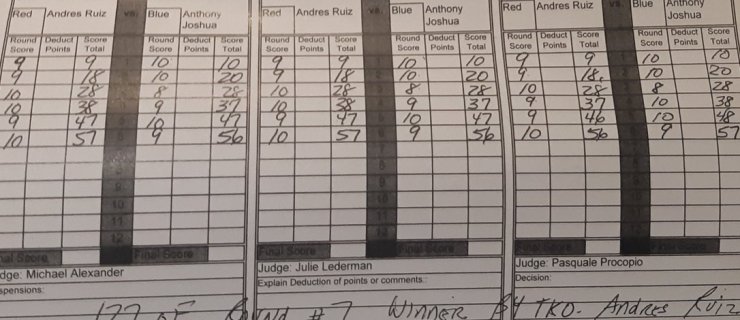 Red Andres Ruiz vs. Blue Anthony Joshua
Round Score Deduct Points Score Total Round Score Deduct Points Score Total
9 9 10 10
9 18 10 20
10 28 8 28
10 38 9 37
9 47 10 47
10 57 9 56
9
10
11
12
Final Score
Judge: Michael Alexander
Red Andres Ruiz vs. Blue Anthony Joshua
Round Score Deduct Points Score Total Round Score Deduct Points Score Total
9 9 10 10
9 18 10 20
10 28 8 28
10 38 9 37
9 47 10 47
10 57 9 56
Final Score Final Score
Judge: Julie Lederman
Explain Deduction of points or comments:
Red Andres Ruiz vs. Blue Anthony Joshua
Round Score Deduct Points Score Total Round Score Deduct Points Score Total
9 9 10 10
9 18 10 20
10 28 8 28
9 37 10 38
9 46 10 48
10 56 9 57
Final Score Final Score
Judge: Pasquale Procopio
Decision:
1:27 OF ROUND #7 WINNER BY TKO- ANDRES RUIZ